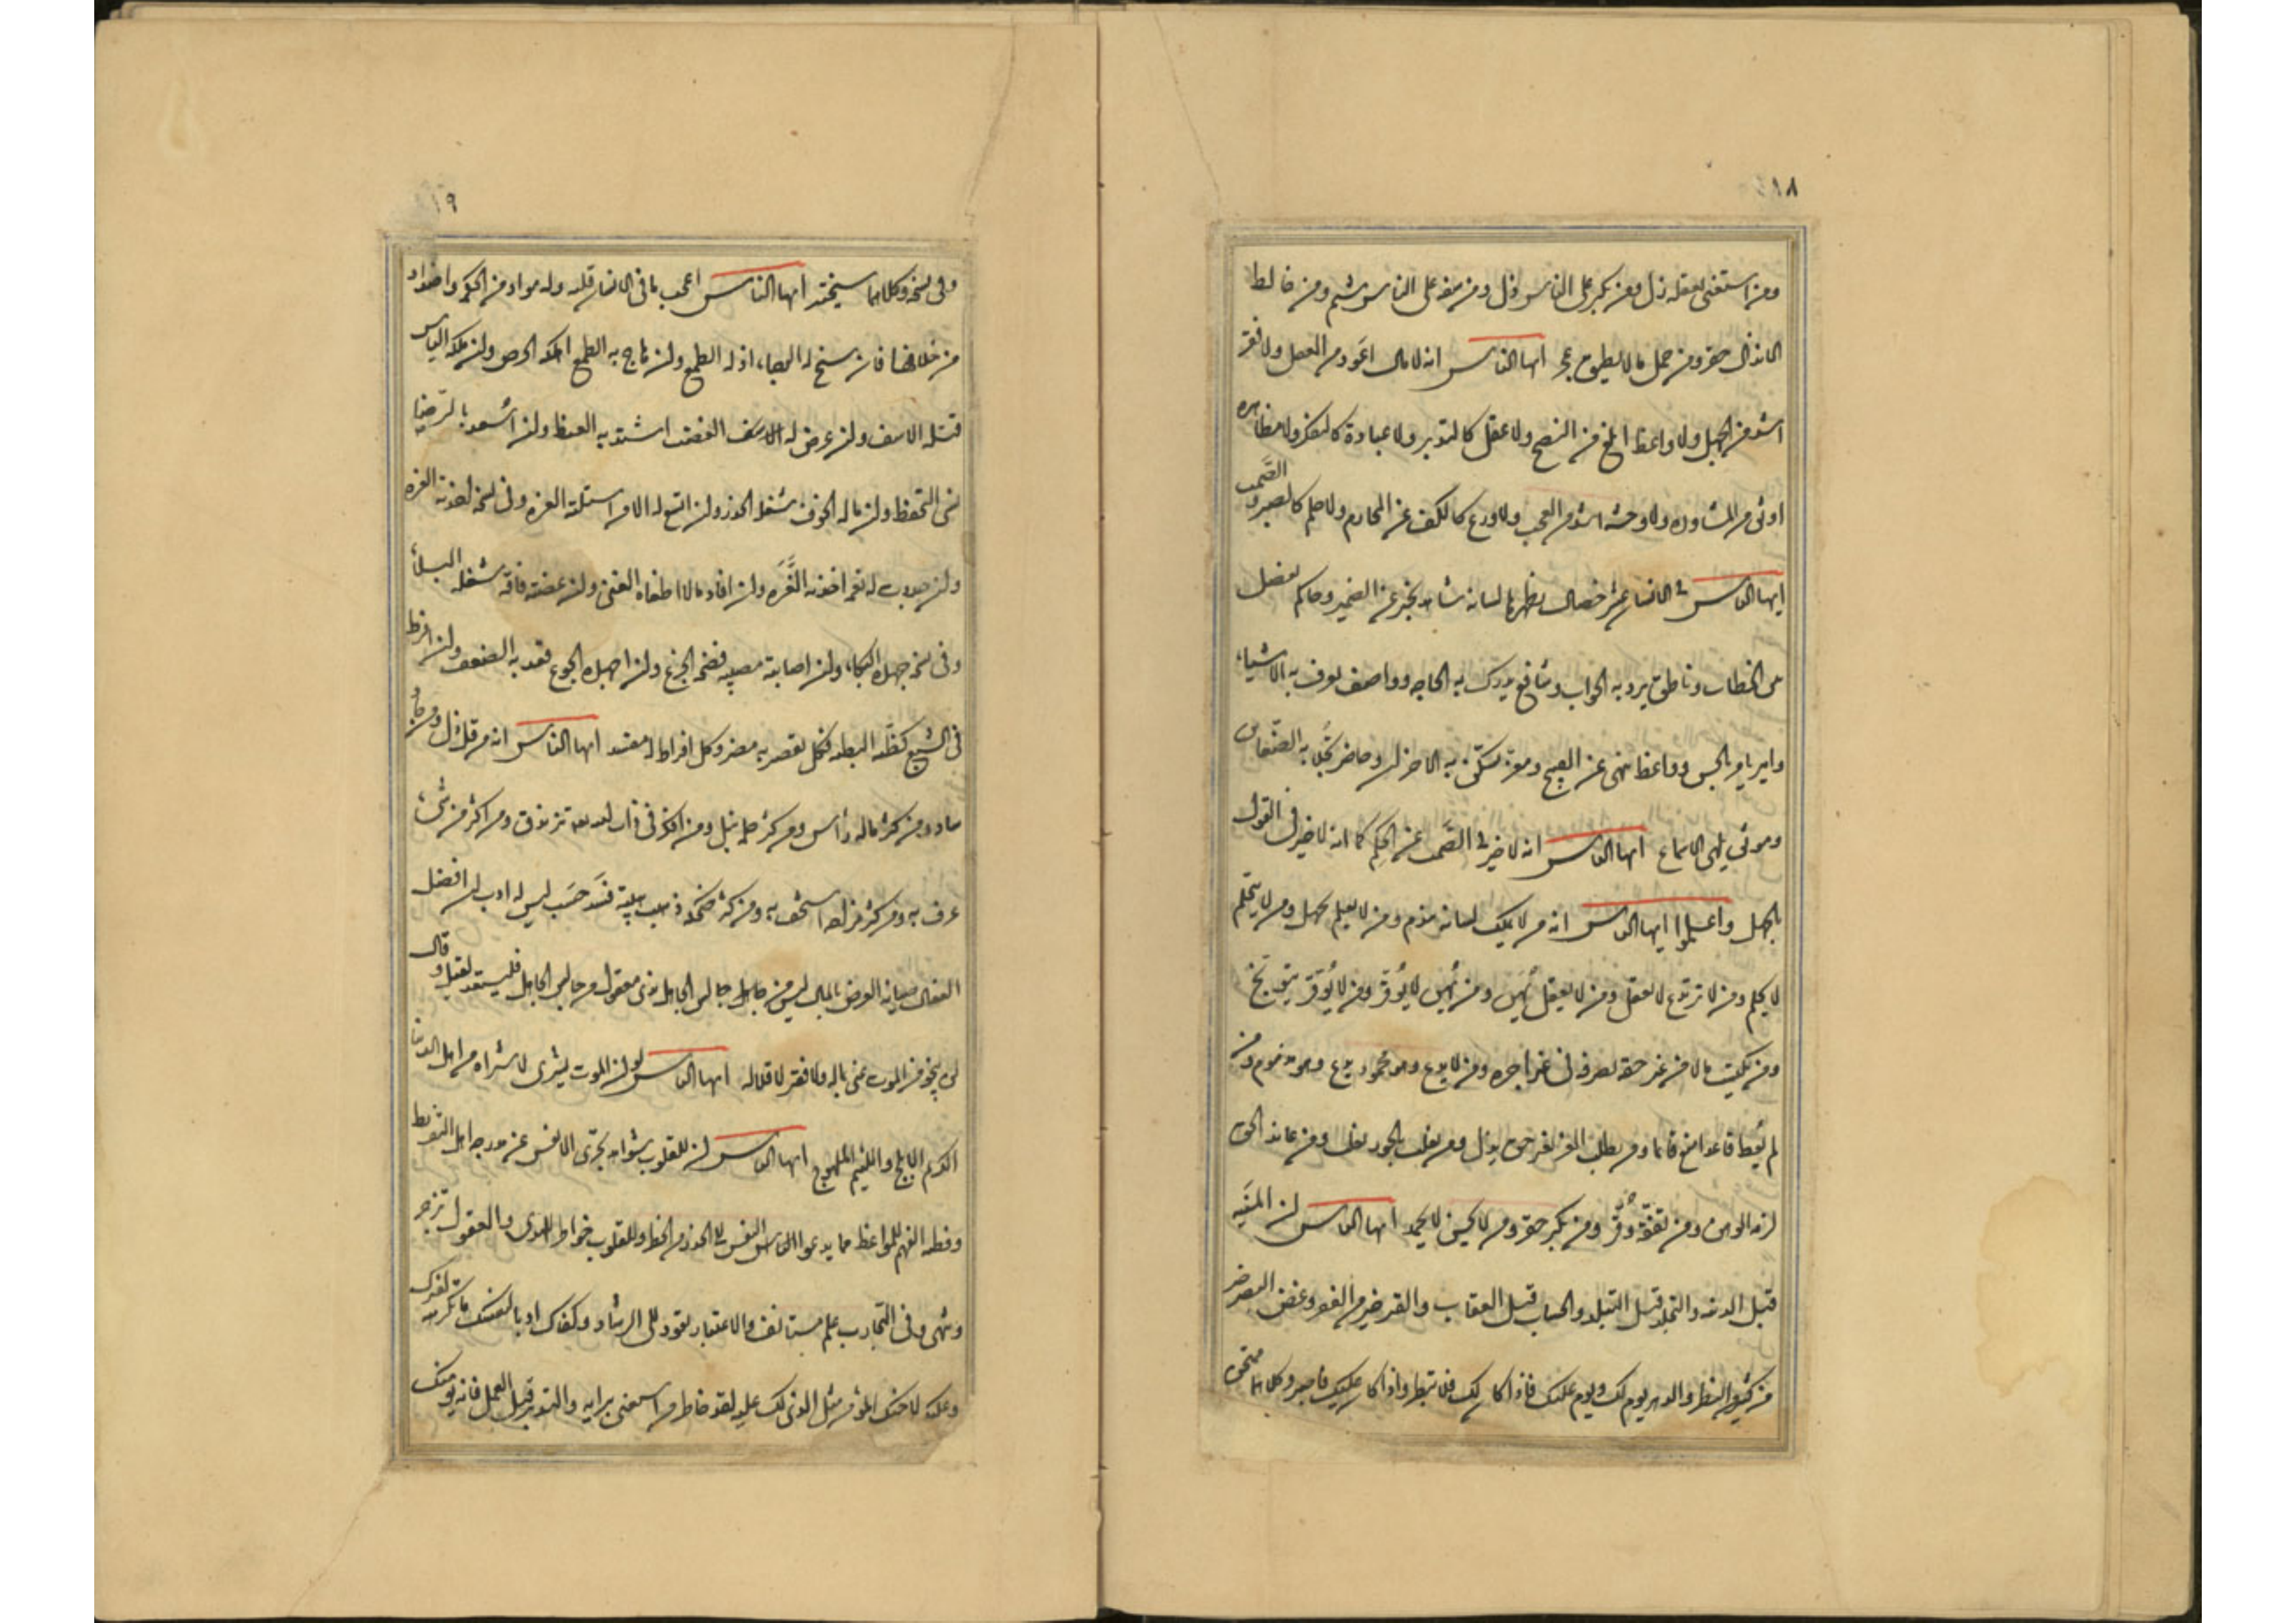 ١٨
ومن استغنى بعقله زل ومن تكبر على الناس ذل ومن سفه على الناس شتم ومن خالط
الانذال حقر ومن حمل ما لا يطيق عجز ايها الناس انه لا مال اعود من العقل ولا فقر
اشد من الجهل ولا واعظ ابلغ من النصح ولا عقل كالتدبر ولا عبادة كالتفكر ولا مظاهره
اوثق من المشاوره ولا وحشه اشد من العجب ولا ورع كالكف عن المحارم ولا حلم كالصبر والصَّمت
ايها الناس في الانسان عشر خصال يظهرها لسانه شاهد يخبر عن الضمير وحاكم يفصل
بين الخطاب وناطق يرد به الجواب وشافع يدرك به الحاجه وواصف يعرف به الاشياء
وامير يامر بالحسن وواعظ ينهى عن القبيح ومعز تسكّن به الاحزان وحاضر تجلا به الضّغاين
ومونق يلهى الاسماع ايها الناس انه لا خير في الصَّمت عن الحكم كما انه لا خير في القول
بالجهل واعلموا ايها الناس انه من لا يملك لسانه يندم ومن لا يعلم يجهل ومن لا يتحلم
لا يحلم ومن لا يرتدع لا يعقل ومن لا يعقل يُهن ومن يُهن لا يُوقر ومن لا يُوقر يتوبخ
ومن يكتسب مالا من غير حقه يصرفه في غير اجره ومن لا يدع وهو محمود يدع وهو مذموم ومن
لم يُعط قاعدا منع قائما ومن يطلب العز بغير حق يذل ومن يغلب بالجور يغلب ومن عاند الحق
لزمه الوهن ومن تفقّه وقّر ومن تكبر حقر ومن لا يحسن لا يحمد ايها الناس ان المنيَه
قبل الدنيه والتجلد قبل التبلد والحساب قبل العقاب والقبر خير من الفقر وغض البصر خير
من كثير النظر والدهر يوم لك ويوم عليك فاذا كان لك فلا تبطر واذا كان عليك فاصبر وكلاهما تمتحن
١٩
وفي نسخه وكلاهما سيختبر ايها الناس اعجب ما في الانسان قلبه وله مواد من الحكمه واضداد
من خلافها فان سنح له الرجاء اذله الطمع وان هاج به الطمع اهلكه الحرص وان ملكه الياس
قتله الاسف وان عرض له الغضب اشتد به الغيظ وان اسعد بالرّضا
نسى التحفظ وان ناله الخوف شغله الحذر وان اتسع له الامر استلبته الغره وفي نسخه اخذته العزه
وان جددت له نعمه اخذته العَّزه وان افاد مالا اطغاه الغنى وان عضته فاقه شغله البلاء
وفي نسخه جهده البكاء وان اصابته مصيبه فضحه الجزع وان اجهده الجوع قعد به الضعف وان افرط
في الشبع كظّته البطنه فكل تقصير به مضر وكل افراط له مفسد ايها الناس انه من قل ذل ومن جاد
ساد ومن كثر ماله رأس ومن كثر حلمه نبل ومن افكر في ذات الله تزندق ومن اكثر من شيء
عرف به ومن كثر مزاحه استخف به ومن كثر ضحكه ذهبت هيبته فسَد حسَب ليس له ادب ان افضل
الفعال صيانه العرض بالمال ليس من جالس الجاهل بذي معقول من جالس الجاهل فليستعد لقيل وقال
لن ينجو من الموت غنى بماله ولا فقير لاقلاله ايها الناس لو ان الموت يشترى لاشتراه من اهل الدنيا
الكريم الابلج واللئيم الملهوج ايها الناس ان للقلوب شواهد تجرى الانفس عن مدرجه اهل التفريط
وفطنه الفهم للمواعظ مما يدعوا النفس الى الحذر من الخطا وللقلوب خواطر للهوى والعقول تزجر
وتنهى وفي التجارب علم مستانف والاعتبار يقود الى الرشاد وكفاك ادبا لنفسك ما تكرهه لغيرك
وعليك لاخيك المؤمن مثل الذي لك عليه لقد خاطر من استغنى برايه والتدبر قبل العمل فانه يومنك